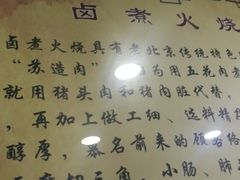 卤煮火烧
卤煮火烧具有老北京传统特色
“苏造肉” 因为用五花肉煮
就用猪头肉和猪内脏代替，
，再加上做工细、选料精
醇厚，慕名前来的顾客络
切三角、小肠、肺